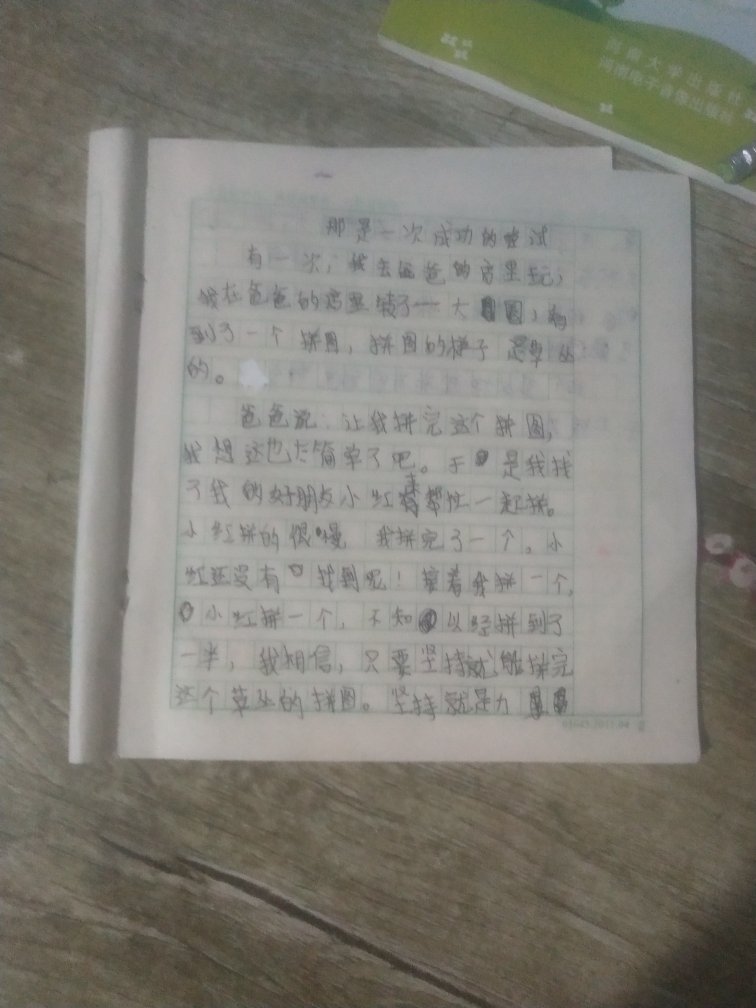 河南大学出版社
河南电子音像出版社
那是一次成功的尝试
有一次,我去爸爸的店里玩,
我在爸爸的店里转了一大圈,看
到了一个拼图,拼图的样子是草丛
的。
爸爸说:让我拼完这个拼图,
我想这也太简单了吧。于是我找
了我的好朋友小红来帮忙一起拼。
小红拼的很慢 我拼完了一个,小
红还没有找到呢!接着我拼一个,
小红拼一个,不知以经拼到了
一半,我相信,只要坚持就能拼完
这个草丛的拼图。坚持就是力